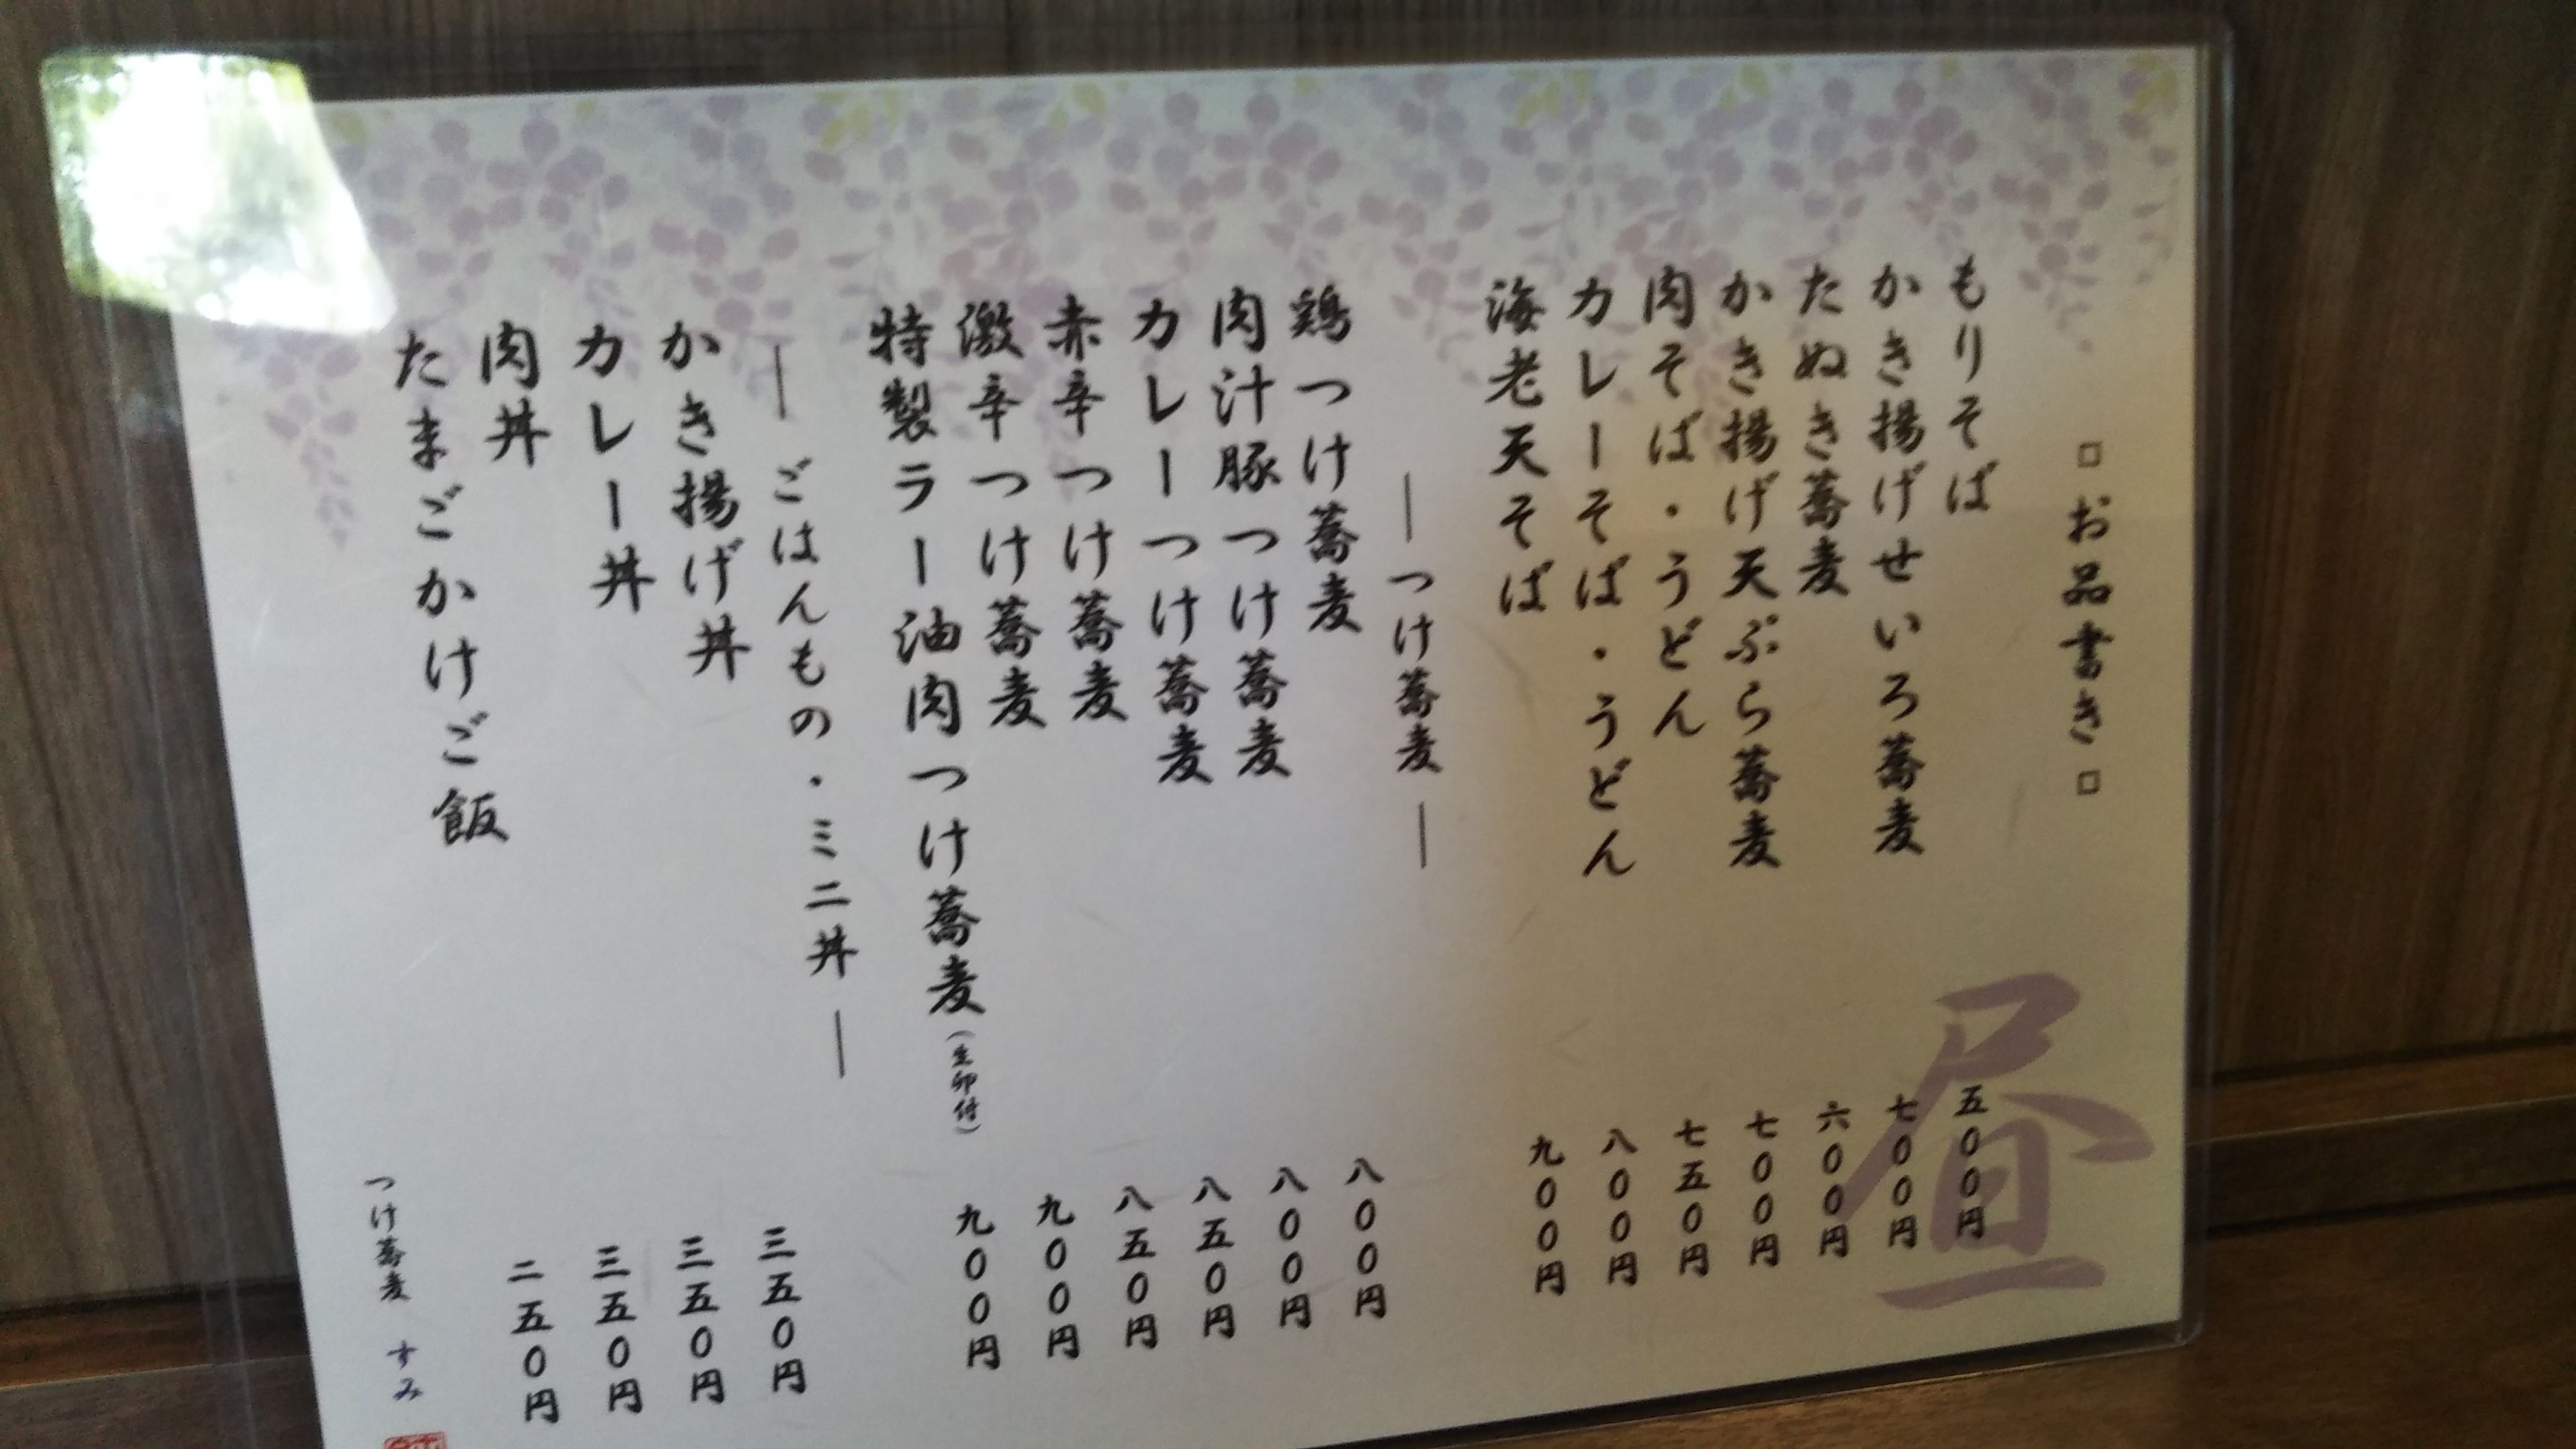 □お品書き□
もりそば 五〇〇円
かき揚げせいろ蕎麦 七〇〇円
たぬき蕎麦 六〇〇円
かき揚げ天ぷら蕎麦 七〇〇円
肉そば・うどん 七五〇円
カレーそば・うどん 八〇〇円
海老天そば 九〇〇円
昼
―つけ蕎麦―
鶏つけ蕎麦 八〇〇円
肉汁豚つけ蕎麦 八〇〇円
カレーつけ蕎麦 八五〇円
赤辛つけ蕎麦 八五〇円
激辛つけ蕎麦 九〇〇円
特製ラー油肉つけ蕎麦(生卵付) 九〇〇円
―ごはんもの・ミニ丼―
かき揚げ丼 三五〇円
カレー丼 三五〇円
肉丼 三五〇円
たまごかけご飯 二五〇円
つけ蕎麦 すみ